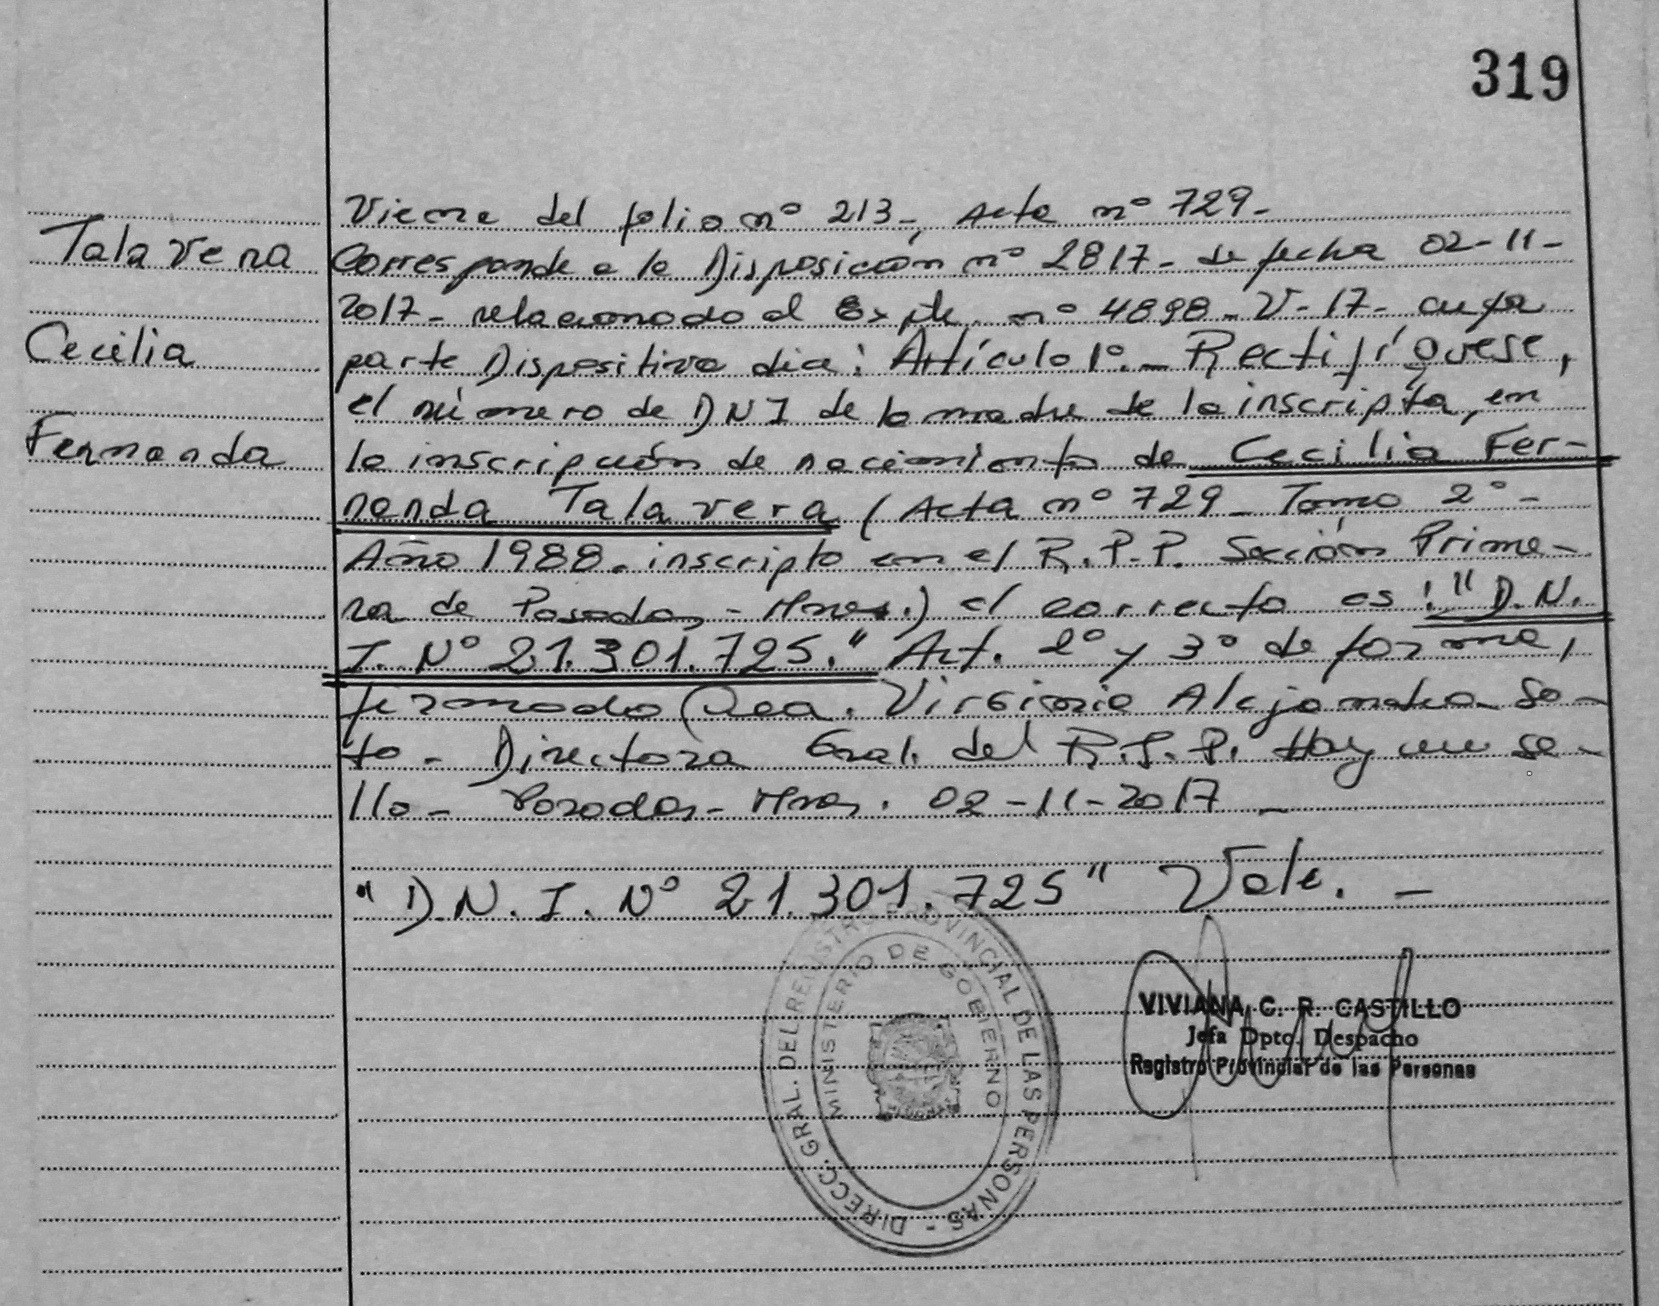 319
Talavera
Cecilia
Fernanda
Viene del folio nº 213-, Acta nº 729-
Corresponde a la Disposición nº 2817- de fecha 02-11-
2017- relacionado al Expte. nº 4898- V-17- cuya
parte Dispositiva dice: Artículo 1º.- Rectifíquese,
el número de DNI de la madre de la inscripta, en
la inscripción de nacimiento de Cecilia Fer-
nanda Talavera (Acta nº 729- Tomo 2º-
Año 1988. inscripto en el R.P.P. Sección Prime-
ra de Posadas,- Mnes.) el correcto es: "D.N.
I. Nº 21.301.725." Art. 2º y 3º de forma,
firmado Dra. Virginia Alejandra So-
to- Directora Gral. del R.P.P. Hay un se-
llo- Posadas- Mnes. 02-11-2017-
"D.N.I. Nº 21.301.725" Vale.-
DIRECC. GRAL. DEL REGISTRO PROVINCIAL DE LAS PERSONAS -
MINISTERIO DE GOBIERNO
VIVIANA C. R. CASTILLO
Jefa Dpto. Despacho
Registro Provincial de las Personas